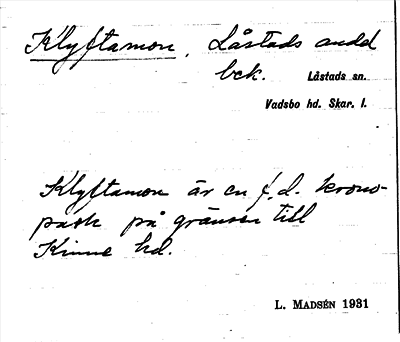 Klyftamon, Låstads and
bek. Låstads sn.
Vadsbo hd. Skar. l.
Klyftamon är en f. d. krono-
park på gränsen till
Kinne hd.
L. MADSÉN 1931